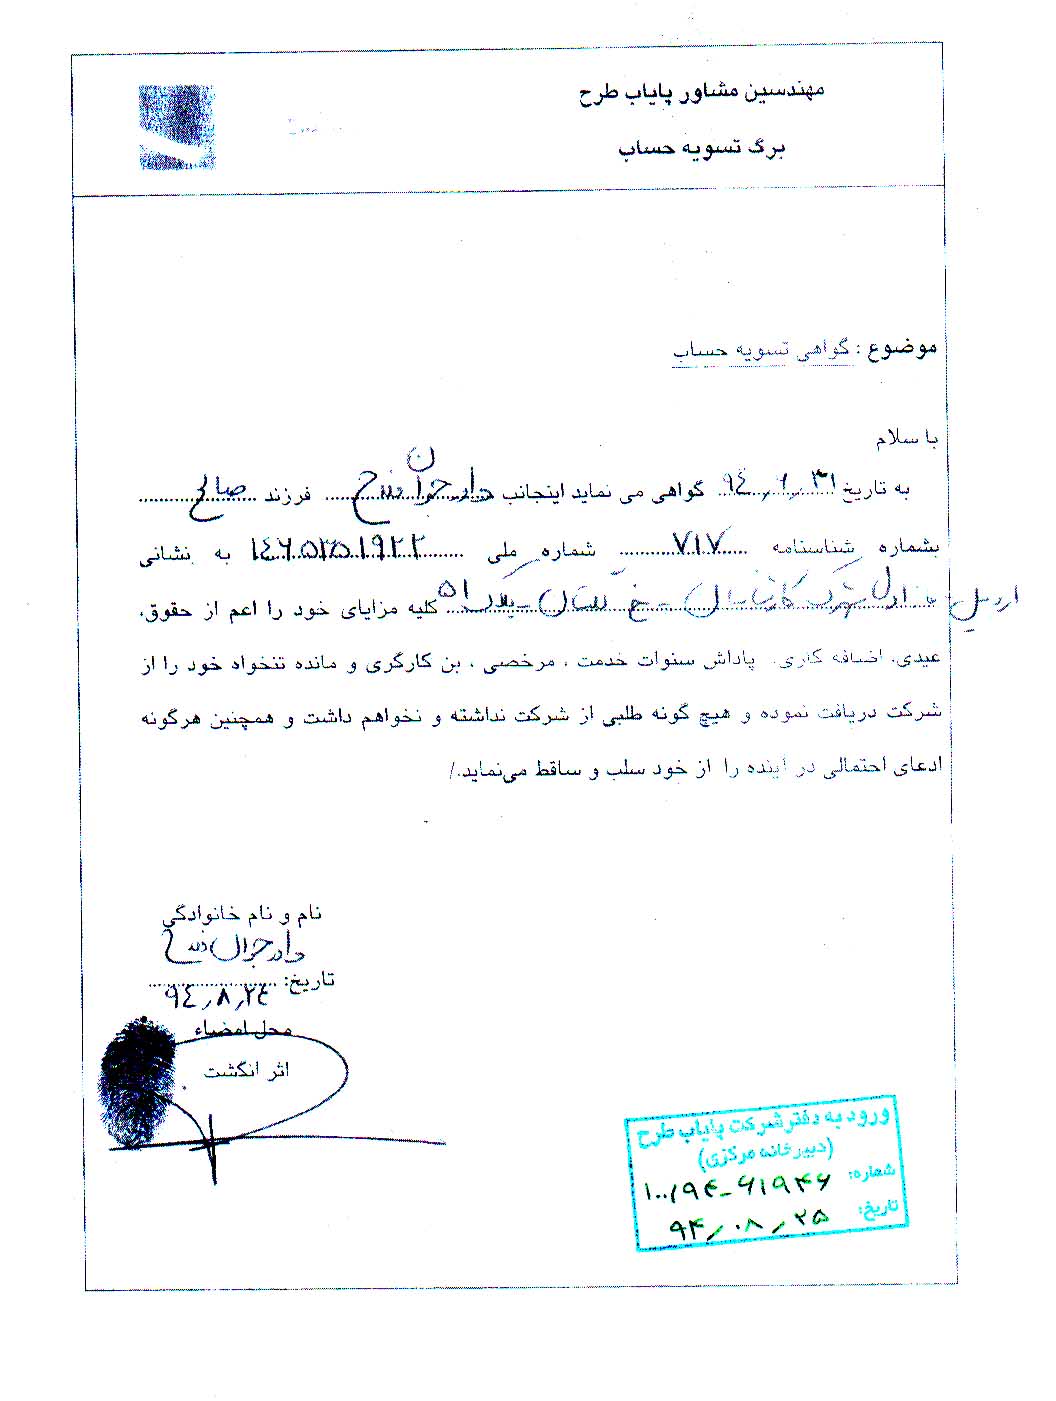 مهندسین مشاور پایاب طرح
برگ تسویه حساب
موضوع : گواهی تسویه حساب
با سلام
به تاریخ ۹٤٫۶٫۳۱ گواهی می نماید اینجانب فرزند صالح
بشماره شناسنامه ۷۱۷ شماره ملی ۱٤۶۵۳۵۱۹۲۲ به نشانی
اردبیل - شهرک - خ - پلاک ۵۱ کلیه مزایای خود را اعم از حقوق،
عیدی، اضافه کاری، پاداش سنوات خدمت ، مرخصی ، بن کارگری و مانده تنخواه خود را از
شرکت دریافت نموده و هیچ گونه طلبی از شرکت نداشته و نخواهم داشت و همچنین هرگونه
ادعای احتمالی در آینده را از خود سلب و ساقط می‌نماید./
نام و نام خانوادگی
تاریخ: ۹٤٫۸٫۲٤
محل امضاء
اثر انگشت
ورود به دفتر شرکت پایاب طرح
(دبیرخانه مرکزی)
شماره: ۱۰۰/۹۴-۶۱۹۴۶
تاریخ: ۹۴/۰۸/۲۵